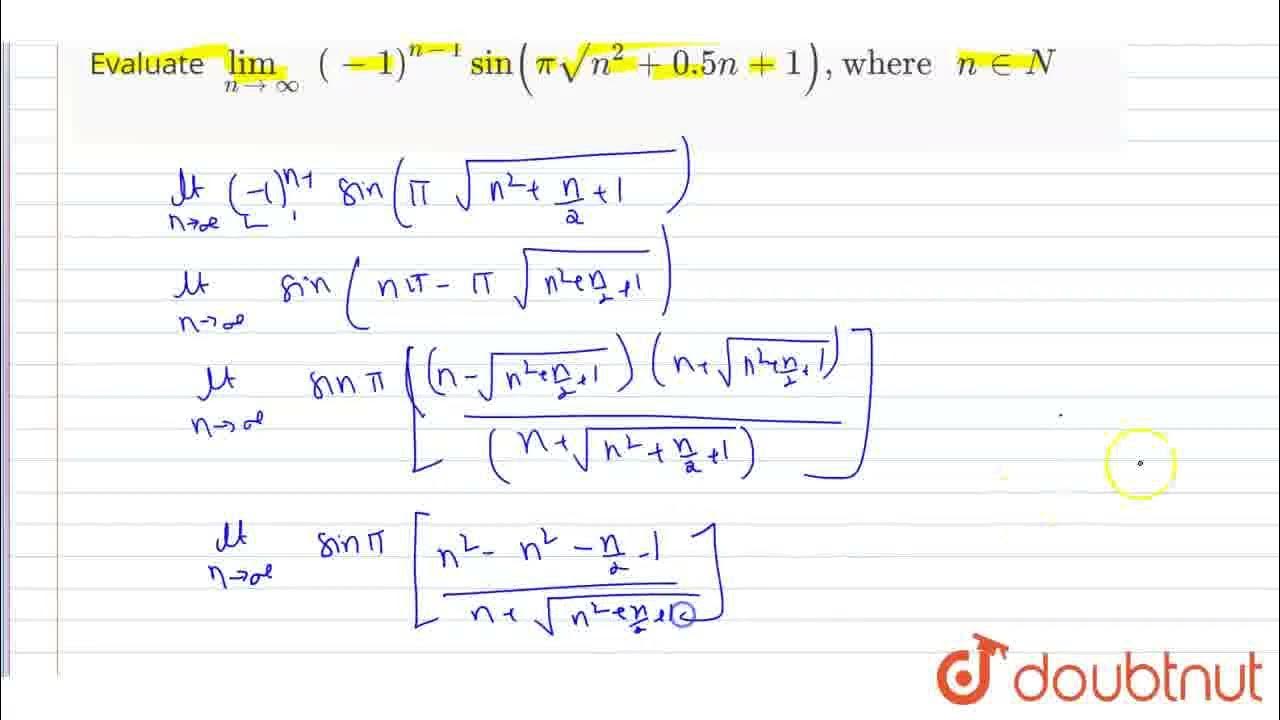 Evaluate lim n→∞ (−1)^{n−1} sin(π√(n² + 0.5n + 1)), where n ∈ N
lt n→∞ (-1)^{n-1} sin(π √(n² + n/2 + 1))
lt n→∞ sin(nπ - π √(n² + n/2 + 1))
lt n→∞ sin π [(n - √(n² + n/2 + 1)) (n + √(n² + n/2 + 1)) / (n + √(n² + n/2 + 1))]
lt n→∞ sin π [n² - n² - n/2 - 1 / n + √(n² + n/2 + 1)]
doubtnut